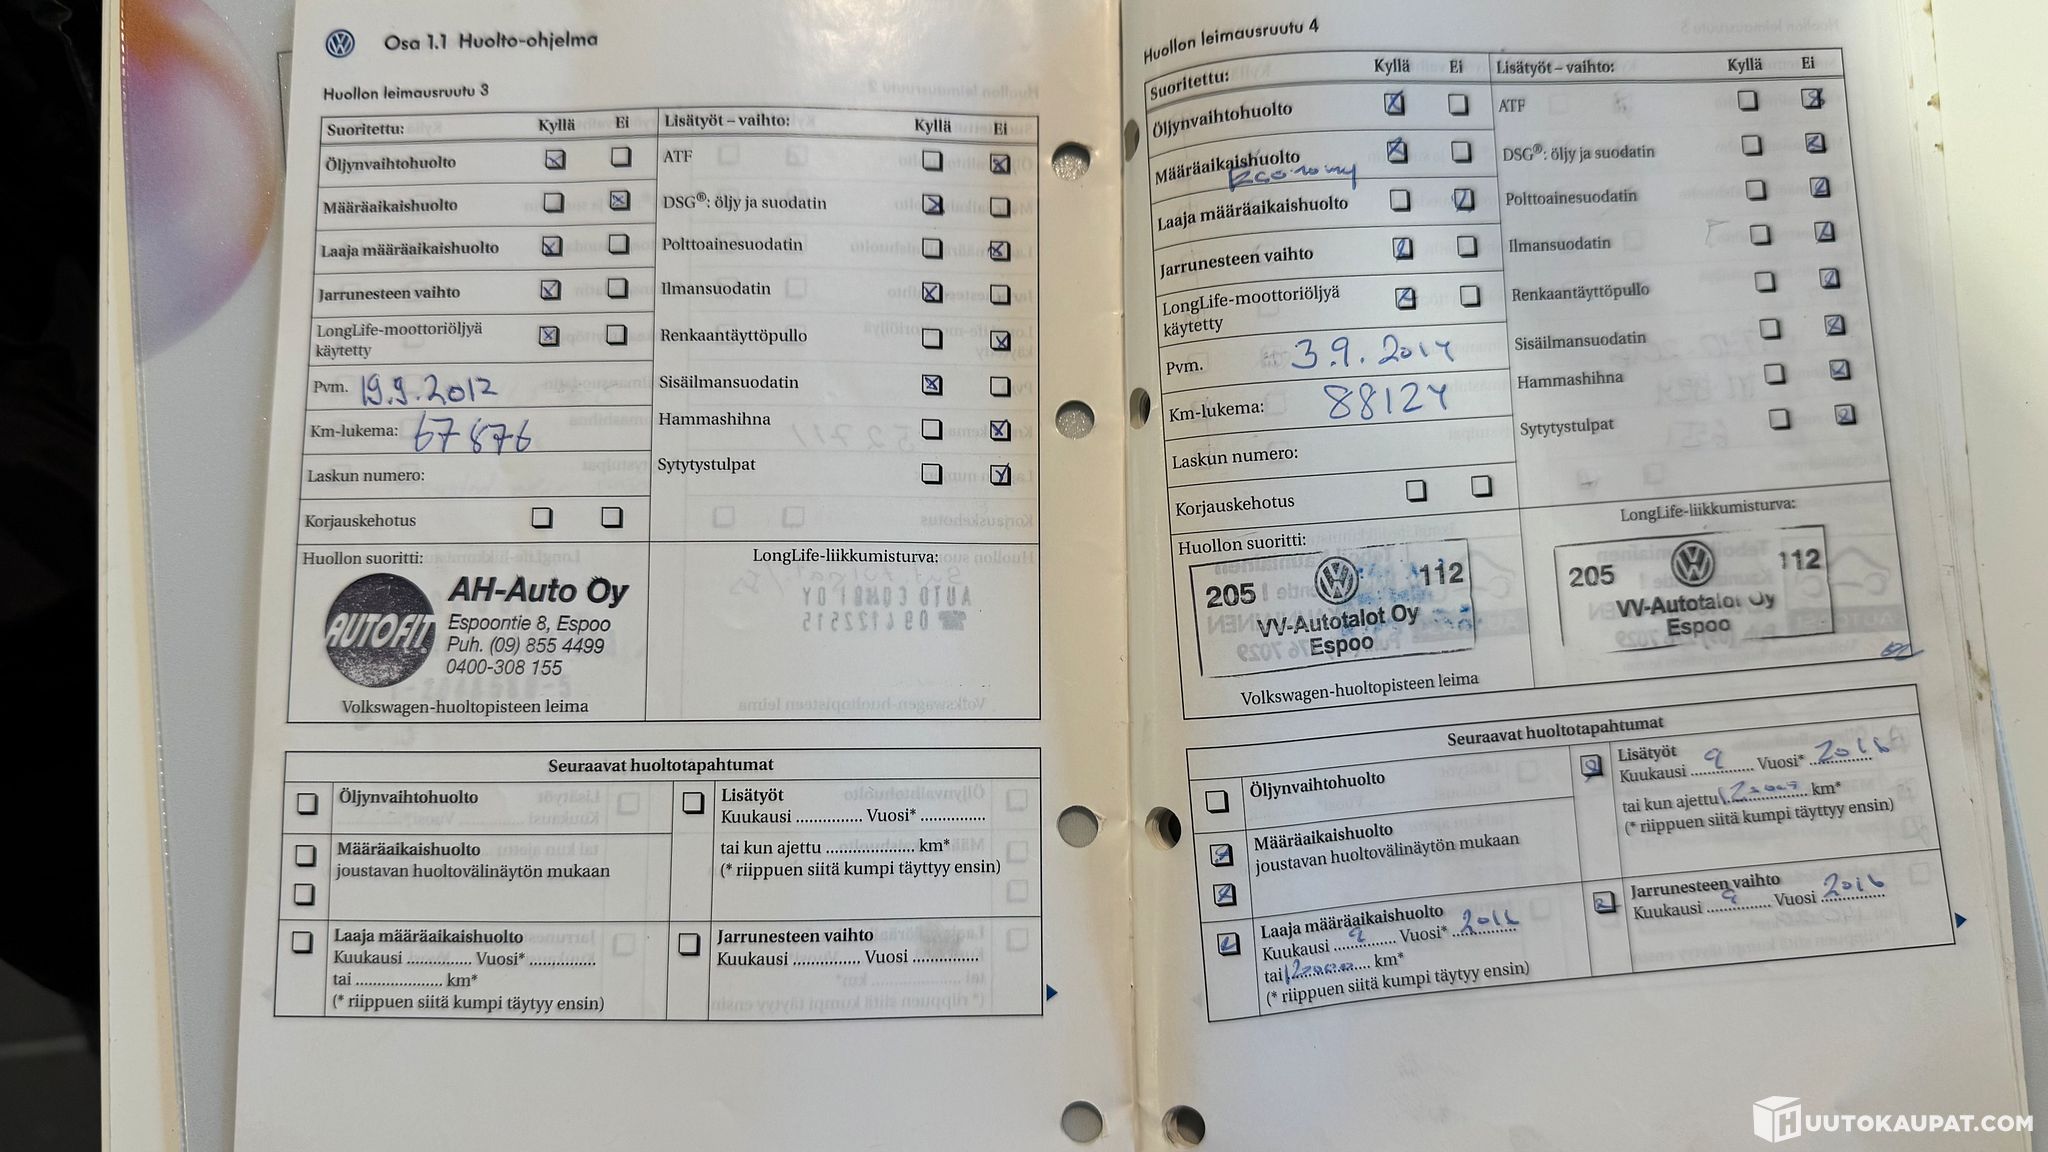 Osa 1.1 Huolto-ohjelma
Huollon leimausruutu 3
Suoritettu: Kyllä Ei
Öljynvaihtohuolto
Määräaikaishuolto
Laaja määräaikaishuolto
Jarrunesteen vaihto
LongLife-moottoriöljyä
käytetty
Pvm. 19.9.2012
Km-lukema: 67876
Laskun numero:
Korjauskehotus
Lisätyöt – vaihto: Kyllä Ei
ATF
DSG®: öljy ja suodatin
Polttoainesuodatin
Ilmansuodatin
Renkaantäyttöpullo
Sisäilmansuodatin
Hammashihna
Sytytystulpat
Huollon suoritti:
AUTOFIT
AH-Auto Oy
Espoontie 8, Espoo
Puh. (09) 855 4499
0400-308 155
Volkswagen-huoltopisteen leima
LongLife-liikkumisturva:
Seuraavat huoltotapahtumat
Öljynvaihtohuolto
Määräaikaishuolto
joustavan huoltovälinäytön mukaan
Laaja määräaikaishuolto
Kuukausi ............. Vuosi* .............
tai .................... km*
(* riippuen siitä kumpi täytyy ensin)
Lisätyöt
Kuukausi ............. Vuosi* .............
tai kun ajettu .................... km*
(* riippuen siitä kumpi täyttyy ensin)
Jarrunesteen vaihto
Kuukausi ............. Vuosi .............
Huollon leimausruutu 4
Suoritettu: Kyllä Ei
Öljynvaihtohuolto
Määräaikaishuolto
Economy
Laaja määräaikaishuolto
Jarrunesteen vaihto
LongLife-moottoriöljyä
käytetty
Pvm. 3.9.2014
Km-lukema: 88124
Laskun numero:
Korjauskehotus
Lisätyöt – vaihto: Kyllä Ei
ATF
DSG®: öljy ja suodatin
Polttoainesuodatin
Ilmansuodatin
Renkaantäyttöpullo
Sisäilmansuodatin
Hammashihna
Sytytystulpat
Huollon suoritti:
205 112
VV-Autotalot Oy
Espoo
Volkswagen-huoltopisteen leima
LongLife-liikkumisturva:
205 112
VV-Autotalot Oy
Espoo
Seuraavat huoltotapahtumat
Öljynvaihtohuolto
Määräaikaishuolto
joustavan huoltovälinäytön mukaan
Laaja määräaikaishuolto
Kuukausi 9 Vuosi* 2016
tai 120000 km*
(* riippuen siitä kumpi täytyy ensin)
Lisätyöt
Kuukausi 9 Vuosi* 2016
tai kun ajettu 120000 km*
(* riippuen siitä kumpi täyttyy ensin)
Jarrunesteen vaihto
Kuukausi 9 Vuosi 2016
HUUTOKAUPAT.COM